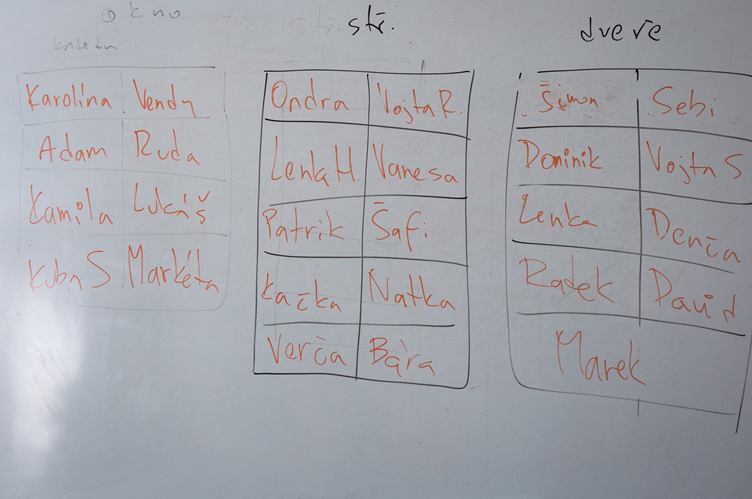 okno
stř.
dveře
Karolína Vendy
Adam Ruda
Kamila Lukáš
Kuba S Markéta
Ondra Vojta R.
Lenka H. Vanesa
Patrik Šafi
Kačka Natka
Verča Bára
Šimon Sebi
Dominik Vojta S
Lenka Denča
Radek David
Marek